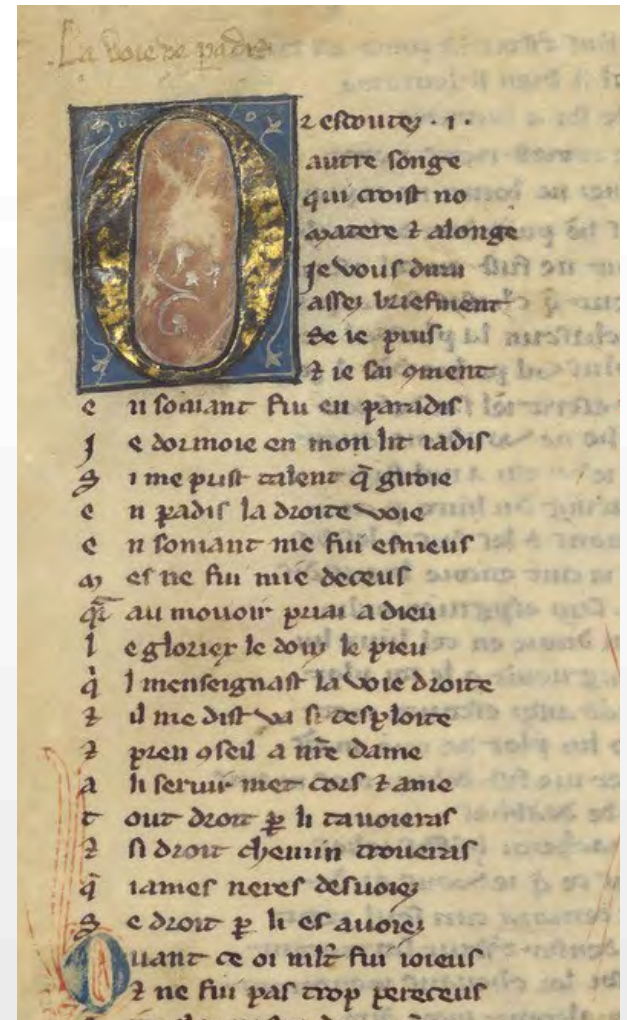 La voie de paradis
Or escoutez . i .
autre songe
qui croist no
matere ⁊ alonge
Je vous dirai
assez briefment
Se ie puis
⁊ ie sai ꝯment
en soniant fui en paradis
je dormoie en mon lit iadis
Si me prist talent q̃ guoie
en padis la droite voie
en soniant me fui esmeus
mes ne fui mie deceus
qr̃ au mouoir priai a dieu
le gloriex le douz le pieu
q̇ l menseignast la voie droite
⁊ il me dist va si tesploite
⁊ pren ꝯseil a nr̃e dame
a li seruir met cors ⁊ ame
tout droit ꝑ li tauoieras
⁊ si droit chemin troueras
q̃ iames neres desuoiez
Se droit ꝑ li es auoiez
Quant ce oi ml̃t fui ioieus
⁊ ne fui pas trop pereceus